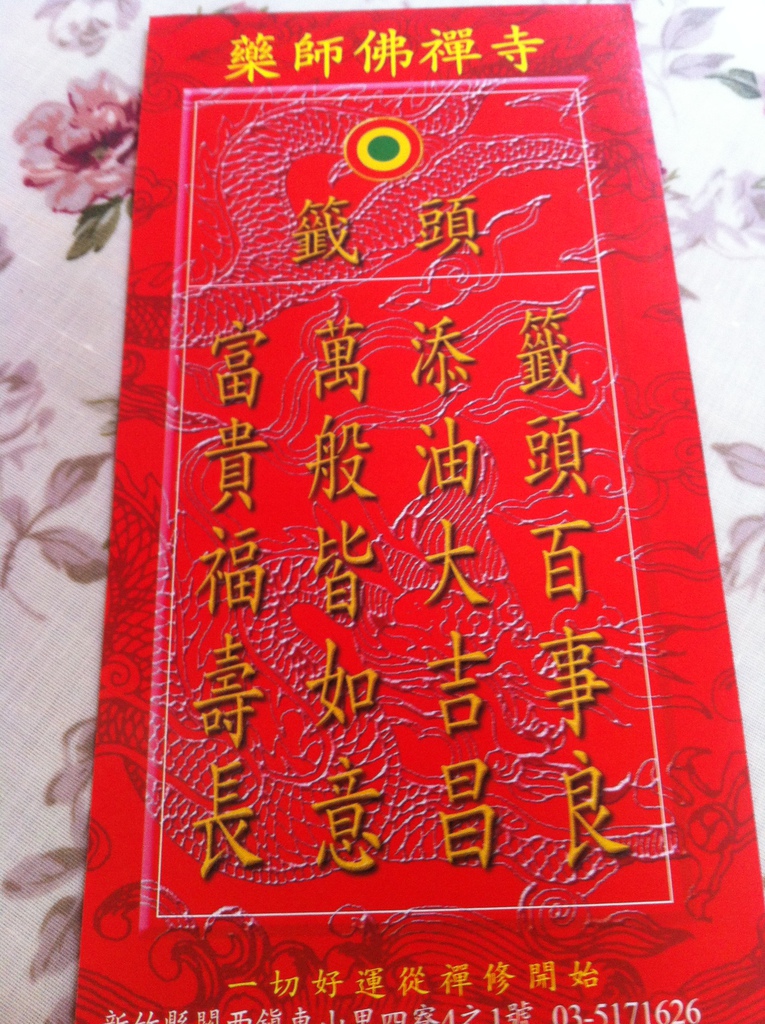 藥師佛禪寺
籤頭
籤頭百事良
添油大吉昌
萬般皆如意
富貴福壽長
一切好運從禪修開始
新竹縣關西鎮東山里四寮4之1號 03-5171626